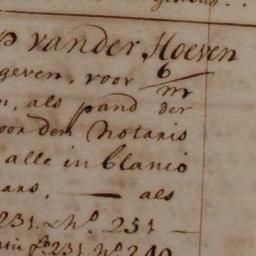 vander Hoeven
geven, voor 6/m
n, als pand der
oor den Notaris
alle in blanco
ans. — als
231. & No. 251 —
fo 231. No. 240